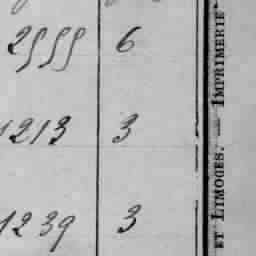 2555 6
1213 3
1239 3
ET LIMOGES. — IMPRIMERIE